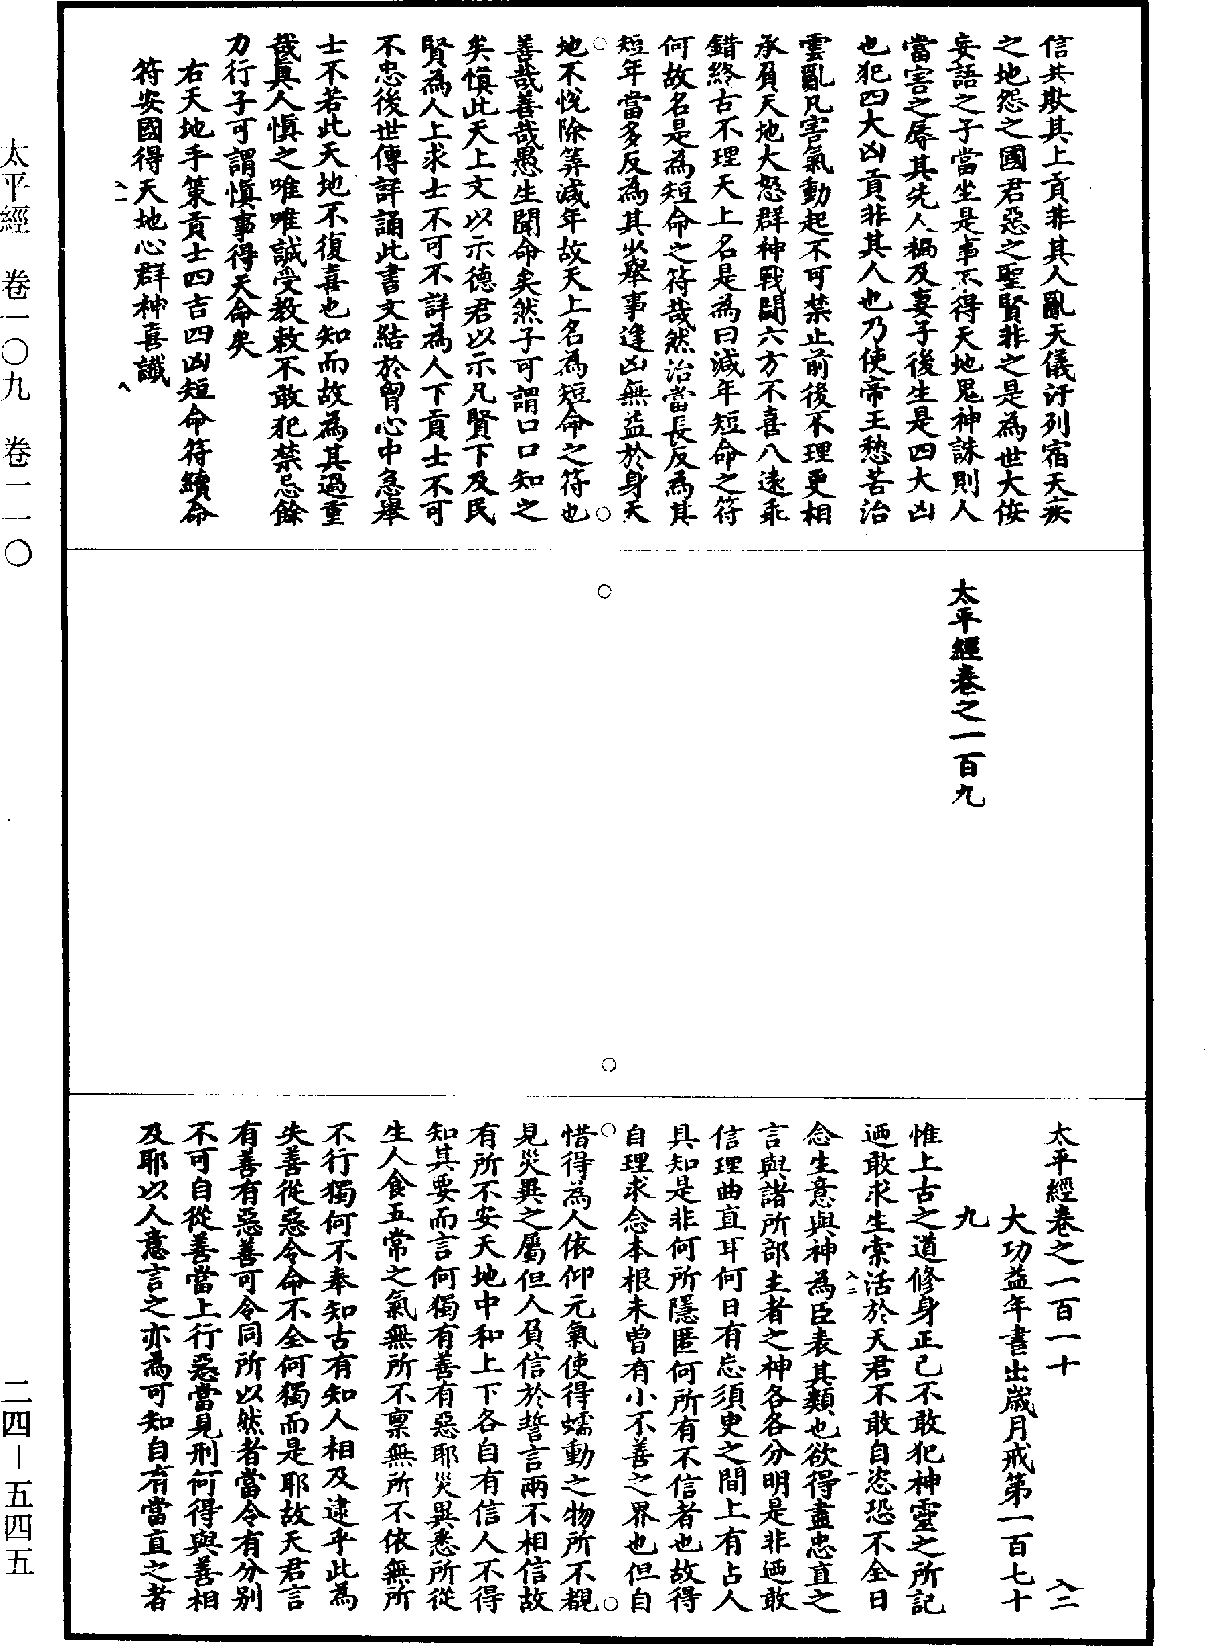 信共欺其上貢非其人亂天儀汙列宿天疾
之地怨之國君惡之聖賢非之是為世大佞
妄語之子當坐是事不得天地鬼神誅則人
當害之辱其先人禍及妻子後生是四大凶
也犯四大凶貢非其人也乃使帝王愁苦治
雲亂凡害氣動起不可禁止前後不理更相
承負天地大怒群神戰鬭六方不喜八遠乖
錯終古不理天上名是為曰減年短命之符
何故名是為短命之符哉然治當長反為其
短年當多反為其少舉事逢凶無益於身天
地不悅除筭減年故天上名為短命之符也
善哉善哉愚生聞命矣然子可謂口口知之
矣慎此天上文以示德君以示凡賢下及民
賢為人上求士不可不詳為人下貢士不可
不忠後世傳詳誦此書文結於胷心中急舉
士不若此天地不復喜也知而故為其過重
哉真人慎之唯唯誠受教敕不敢犯禁忌餘
力行子可謂慎事得天命矣
右天地手策貢士四吉四凶短命符續命
符安國得天地心群神喜讖
太平經卷之一百九
太平經卷之一百一十 入二
大功益年書出歲月戒第一百七十
九
惟上古之道修身正己不敢犯神靈之所記
迺敢求生索活於天君不敢自恣恐不全日
念生意與神為臣表其類也欲得盡忠直之
言與諸所部主者之神各各分明是非迺敢
信理曲直耳何日有忘須臾之間上有占人
具知是非何所隱匿何所有不信者也故得
自理求念本根未曾有小不善之界也但自
惜得為人依仰元氣使得蠕動之物所不覩
見災異之屬但人負信於誓言兩不相信故
有所不安天地中和上下各自有信人不得
知其要而言何獨有善有惡耶災異悉所從
生人食五常之氣無所不禀無所不依無所
不行獨何不奉知古有知人相及逮乎此為
失善從惡令命不全何獨而是耶故天君言
有善有惡善可令同所以然者當令有分別
不可自從善當上行惡當見刑何得與善相
及耶以人意言之亦為可知自有當直之者
太平經 卷一〇九 卷一一〇
二四－五四五